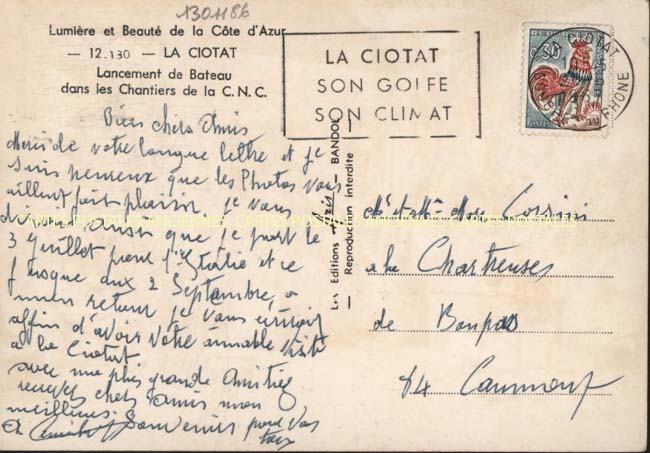 1301186
Lumière et Beauté de la Côte d'Azur
— 12.130 — LA CIOTAT
Lancement de Bateau
dans les Chantiers de la C.N.C.
LA CIOTAT
SON GOLFE
SON CLIMAT
LA CIOTAT
RHONE
0,30
POSTES
Bien chers Amis
Merci de votre longue lettre et je
suis heureux que les Photos vous
aillent fait plaisir, je vous
dirai aussi que je part le
3 Juillet pour l'Italie et ce
jusque aux 2 Septembre, a
mon retour je vous écrirais
affin d'avoir votre aimable visite
a la Ciotat
avec ma plus grande Amitiés
recevez chers amis mon
meilleures Souvenirs pour vos
CARTES POSTALES ANCIENNES CARTES POSTALES
Les Editions — BANDOL
Reproduction interdite
Mr et Mme
a la Chartreuses
de Bonpas
84 Caumont